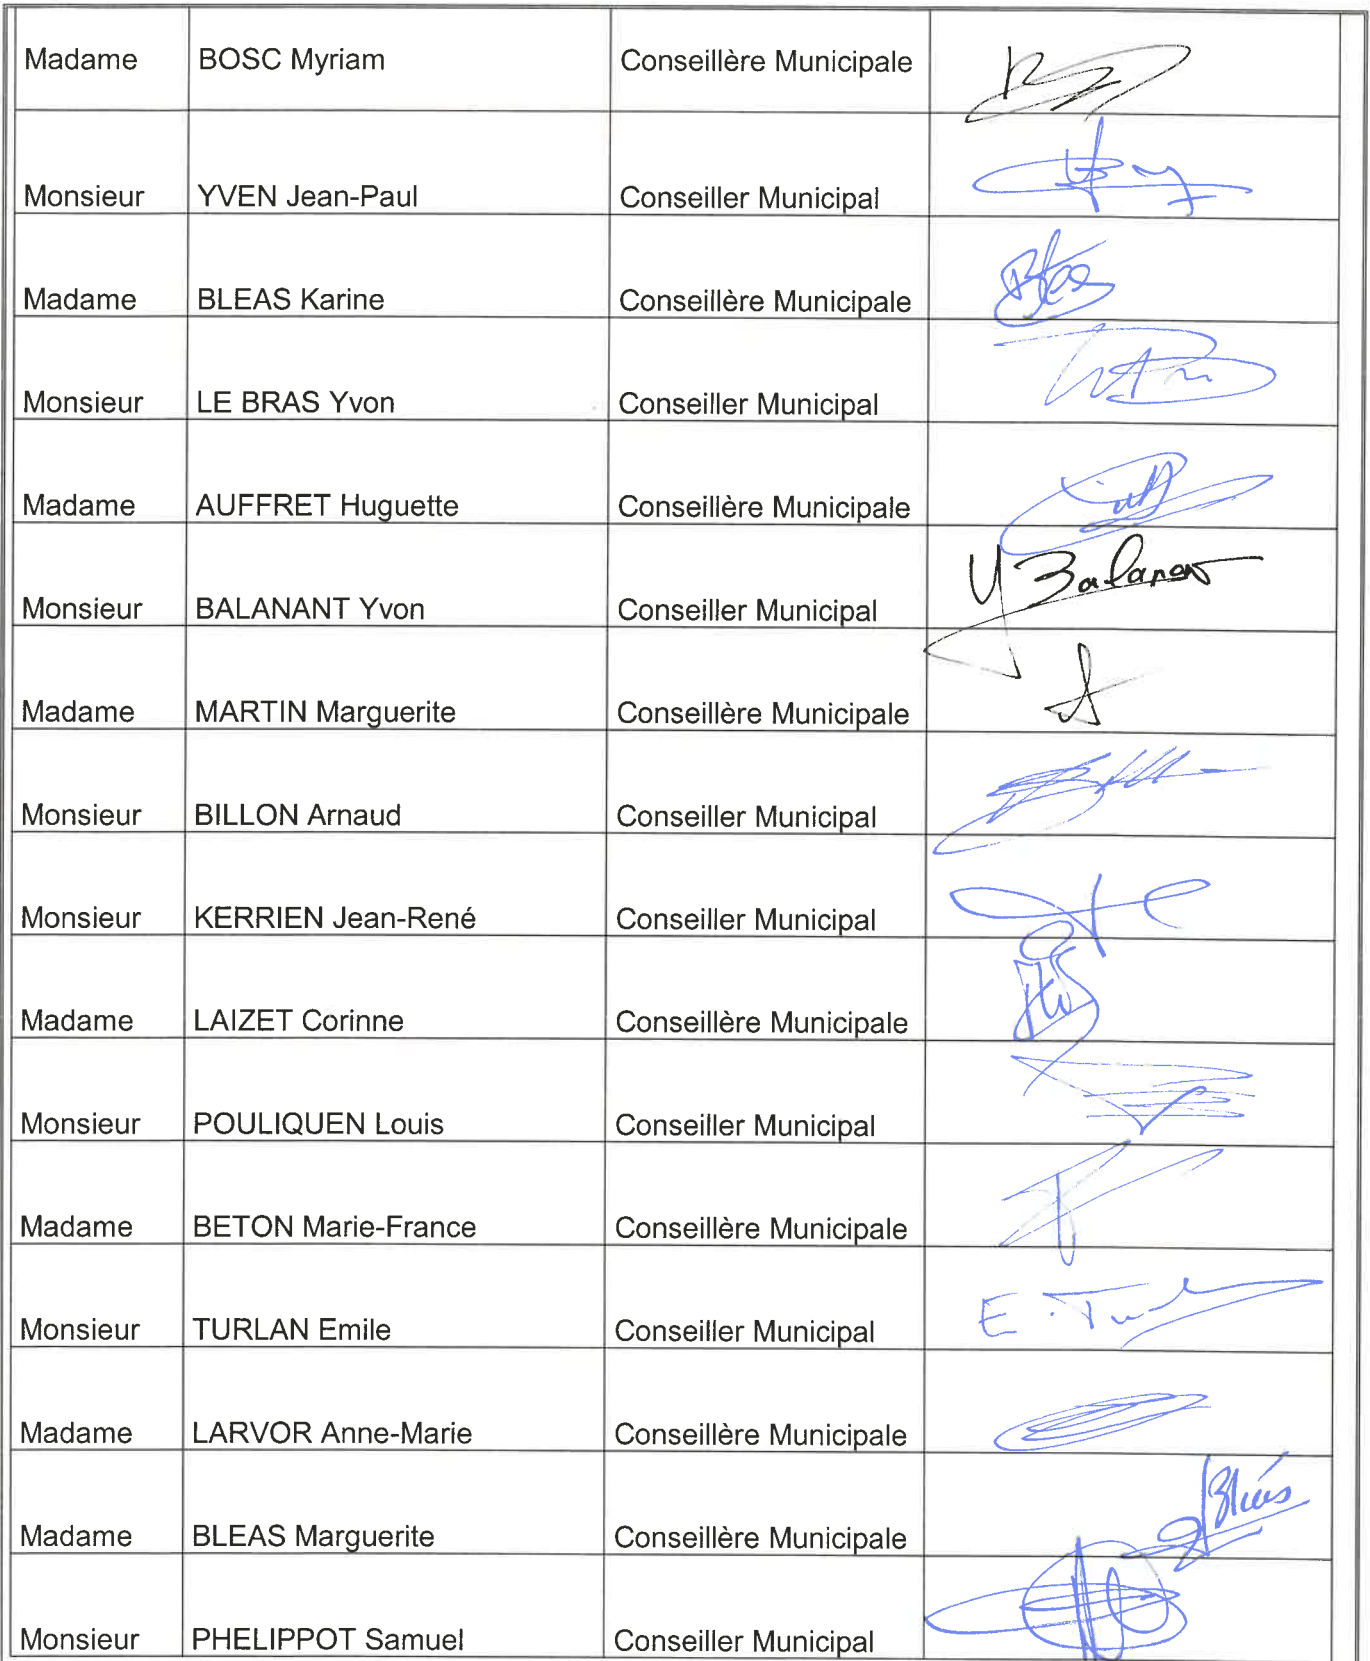 Madame BOSC Myriam Conseillère Municipale
Monsieur YVEN Jean-Paul Conseiller Municipal
Madame BLEAS Karine Conseillère Municipale
Monsieur LE BRAS Yvon Conseiller Municipal
Madame AUFFRET Huguette Conseillère Municipale
Monsieur BALANANT Yvon Conseiller Municipal Y Balanant
Madame MARTIN Marguerite Conseillère Municipale
Monsieur BILLON Arnaud Conseiller Municipal
Monsieur KERRIEN Jean-René Conseiller Municipal
Madame LAIZET Corinne Conseillère Municipale
Monsieur POULIQUEN Louis Conseiller Municipal
Madame BETON Marie-France Conseillère Municipale
Monsieur TURLAN Emile Conseiller Municipal E.
Madame LARVOR Anne-Marie Conseillère Municipale
Madame BLEAS Marguerite Conseillère Municipale Bléas
Monsieur PHELIPPOT Samuel Conseiller Municipal